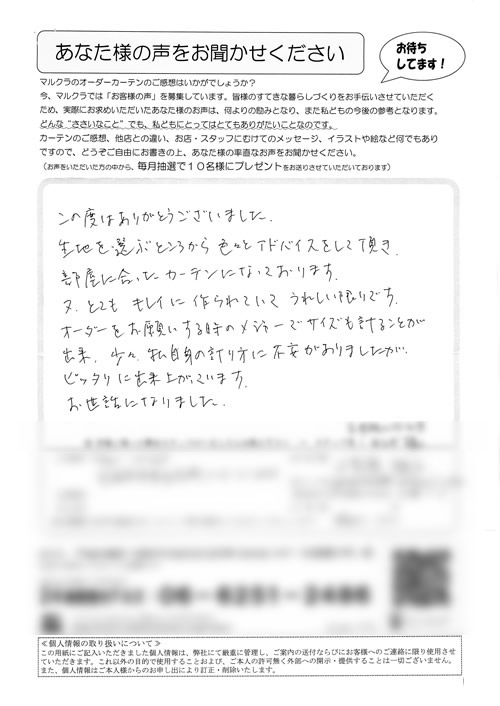 あなた様の声をお聞かせください
お待ち
してます！
マルクラのオーダーカーテンのご感想はいかがでしょうか？
今、マルクラでは「お客様の声」を募集しています。皆様のすてきな暮らしづくりをお手伝いさせていただく
ため、実際にお求めいただいたあなた様のお声は、何よりの励みとなり、また私どもの今後の参考となります。
どんな“ささいなこと”でも、私どもにとってはとてもありがたいことなのです。
カーテンのご感想、他店との違い、お店・スタッフにむけてのメッセージ、イラストや絵など何でもあり
ですので、どうぞご自由にお書きの上、あなた様の率直なお声をお聞かせください。
（お声をいただいた方の中から、毎月抽選で１０名様にプレゼントをお送りさせていただいております）
この度はありがとうございました。
生地を選ぶところから色々とアドバイスをして頂き、
部屋に合ったカーテンになっております。
又、とても キレイに作られていて うれしい限りです。
オーダーをお願いする時のメジャーでサイズも計ることが
出来、少々、私自身の計り方に不安がありましたが、
ピッタリに出来上がっています。
お世話になりました。
06-6251-2486
≪個人情報の取り扱いについて≫
この用紙にご記入いただきました個人情報は、弊社にて厳重に管理し、ご案内の送付ならびにお客様へのご連絡に限り使用させ
ていただきます。これ以外の目的で使用することおよび、ご本人の許可無く外部への開示・提供することは一切ございません。
また、個人情報はご本人様からのお申し出により訂正・削除いたします。